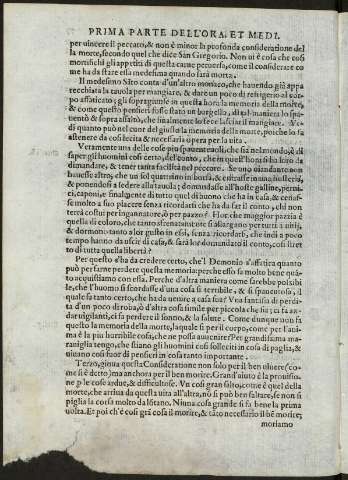 PRIMA PARTE DELL'ORA. ET MEDI.
per vincere il peccato, & non è minor la profonda consideratione del
la morte, secondo quel che dice San Gregorio. Non ui è cosa che così
mortifichi gli appetiti di questa carne peruersa, come il considerare co
me ha da stare essa medesima quando sarà morta.
Il medesimo Sāto conta d'un'altro monaco, che hauendo già appa
recchiata la tauola per mangiare, & dare un poco di refrigerio al cor
po affaticato; gli sopragiunse in questa hora la memoria della morte,
& come questo pensieri fosse stato un birro, di tal maniera lo spa
uentò & sopra assaltò, che finalmente lo fece lasciar il mangiare. Ve
di quanto può nel cuor del giusto la memoria della morte, poiche lo fa
astenere da cosa lecita & necessaria opera per la uita.
Veramente una delle cose più spauenteuoli, che sia nel mondo, è di
saper gli huomini così certo, del conto, che in quell'hora si ha loro da
dimandare, & tener tanta facilità nel peccare. Se uno uiandante non
hauesse altro, che un sol quattrino in borsa, & entrasse in una hosteria,
& ponendosi a sedere alla tauola; domandasse all'hoste galline, perni-
ci, caponi, e finalmente di tutto quel di buono che ha in casa, & cenas-
se molto a suo piacere senza ricordarsi che ha da far il conto, chi non
terrà costui per ingannatore, ò per pazzo? Hor che maggior pazzia è
quella di coloro, che tanto sfrenatamente si allargano per tutti i uitij,
& dormono tanto a lor gusto in essi, senza ricordarsi, che indi a poco
tempo hanno da uscir di casa, & sarà lor domandato il conto, così stret
to di tutta quella libertà?
Per questo s'ha da credere certo, che'l Demonio s'affatica quanto
può per farne perdere questa memoria: perche esso sa molto bene quā
to acquistiamo con essa. Perche d'altra maniera come sarebbe possibi
le, che l'huomo si scordasse d'una cosa sì terribile, & sì spauentosa, il
quale sa tanto certo, che ha da uenire a casa sua? Vna fantasia di perdi
ta d'un poco di roba, ò d'altra cosa simile per piccola che sia; ci fa an-
dar uigilanti, ci fa perdere il sonno, & la salute. Come dunque non fa
questo la memoria della morte, laquale sì per il corpo, come per l'ani-
ma è la più horribile cosa, che ne possa auuenire? Per grandissima ma
rauiglia tengo, che diano gli huomini così solleciti in cosa di paglia, &
uiuano così fuor di pensieri in cosa tanto importante.
Terzo, gioua questa Consideratione non solo per il ben uiuere (co-
me si è detto) ma anchora per il ben morire. Grand'aiuto è la prouisio.
ne p le cose ardue, & difficultose. Vn così gran salto, come è quel della
morte, che arriua da questa uita all'altra, nō si può ben saltare, se non si
piglia la corsa molto da lōtano. Niuna cosa grande si fa bene la prima
uolta. Et poi ch'è così grā cosa il morire, & tāto necessario il bē morire;
moriamo